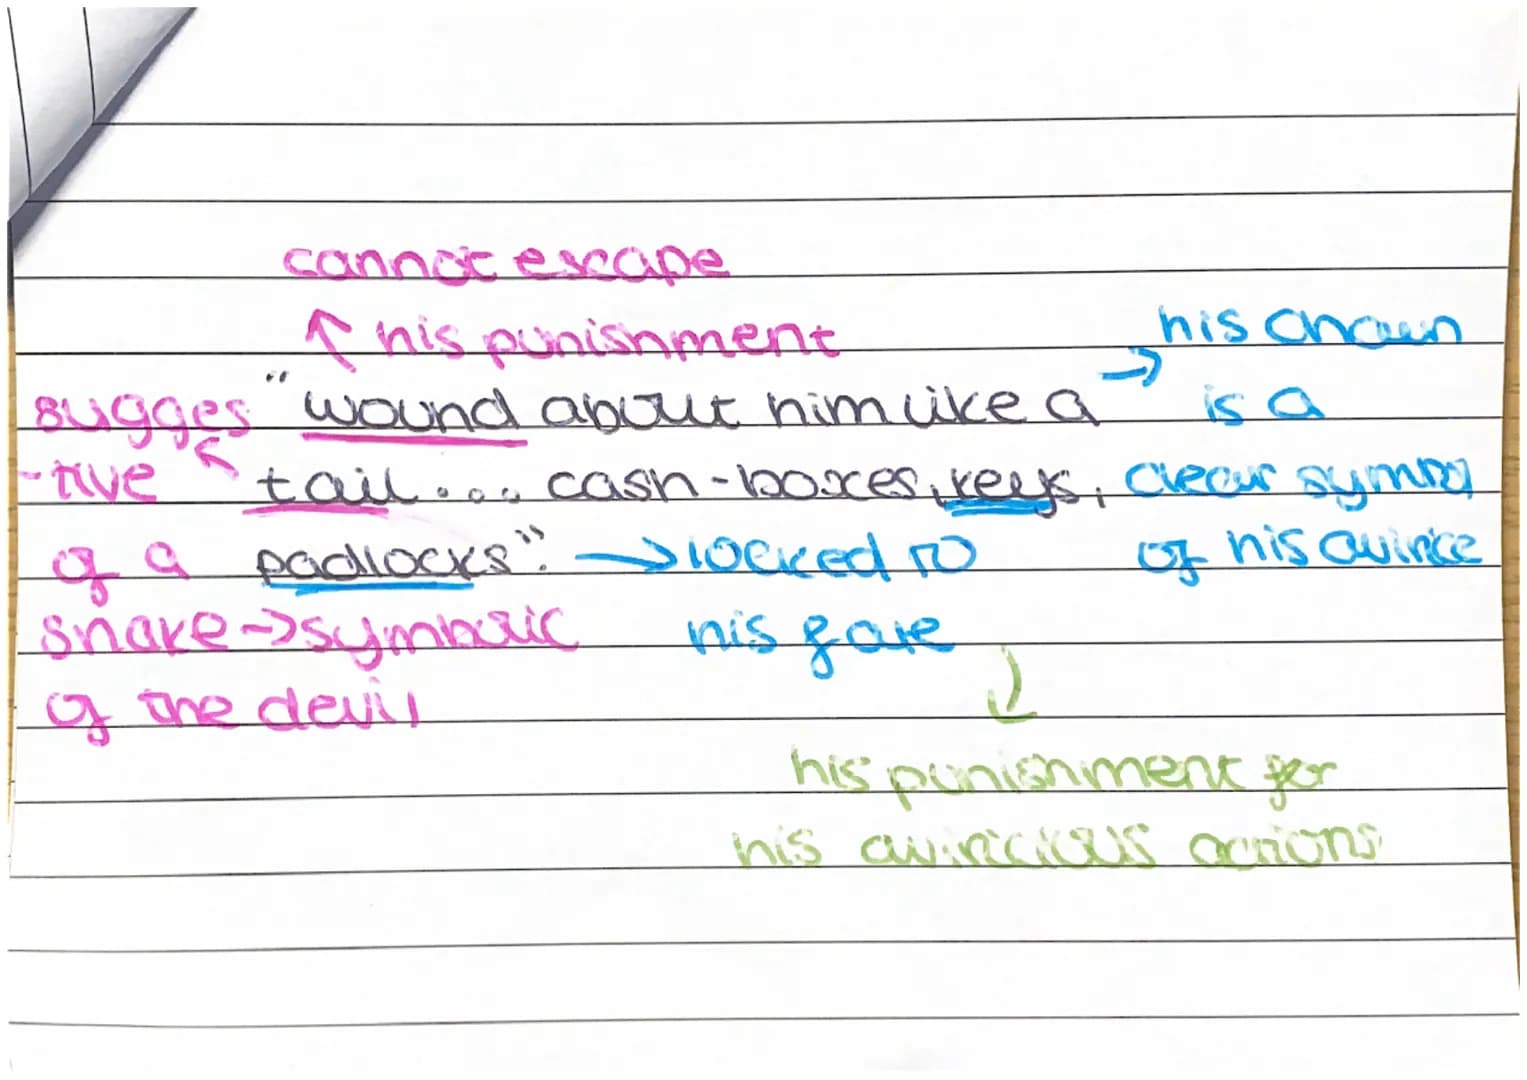 cannot escape
↑ his punishment
his chain
"wound about him like a → is a
sugges
-tive
tail... cash-boxes, keys, clear symbol
of a padlocks". → locked to of his avirice
snake → symbolic his fate
of the devil
his punishment for
his aviricious actions